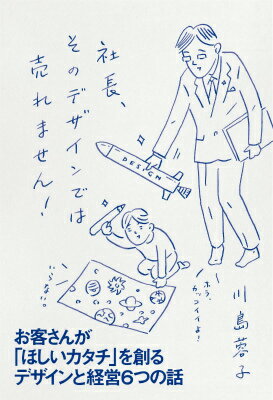 社長、
そのデザインでは
売れません!
DESIGN
ホラ、
カッコイイよ!
いらない。
川島蓉子
お客さんが
「ほしいカタチ」を創る
デザインと経営6つの話